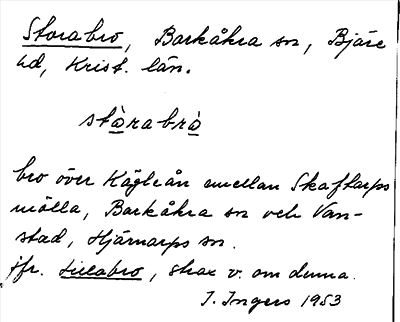 Storabro, Barkåkra sn, Bjäre
hd, Krist. län.
stòrabrò
bro över Kägleån emellan Skaftarps
mölla, Barkåkra sn och Van-
stad, Hjärnarps sn.
jfr. Lillabro, strax v. om denna.
I. Ingers 1953